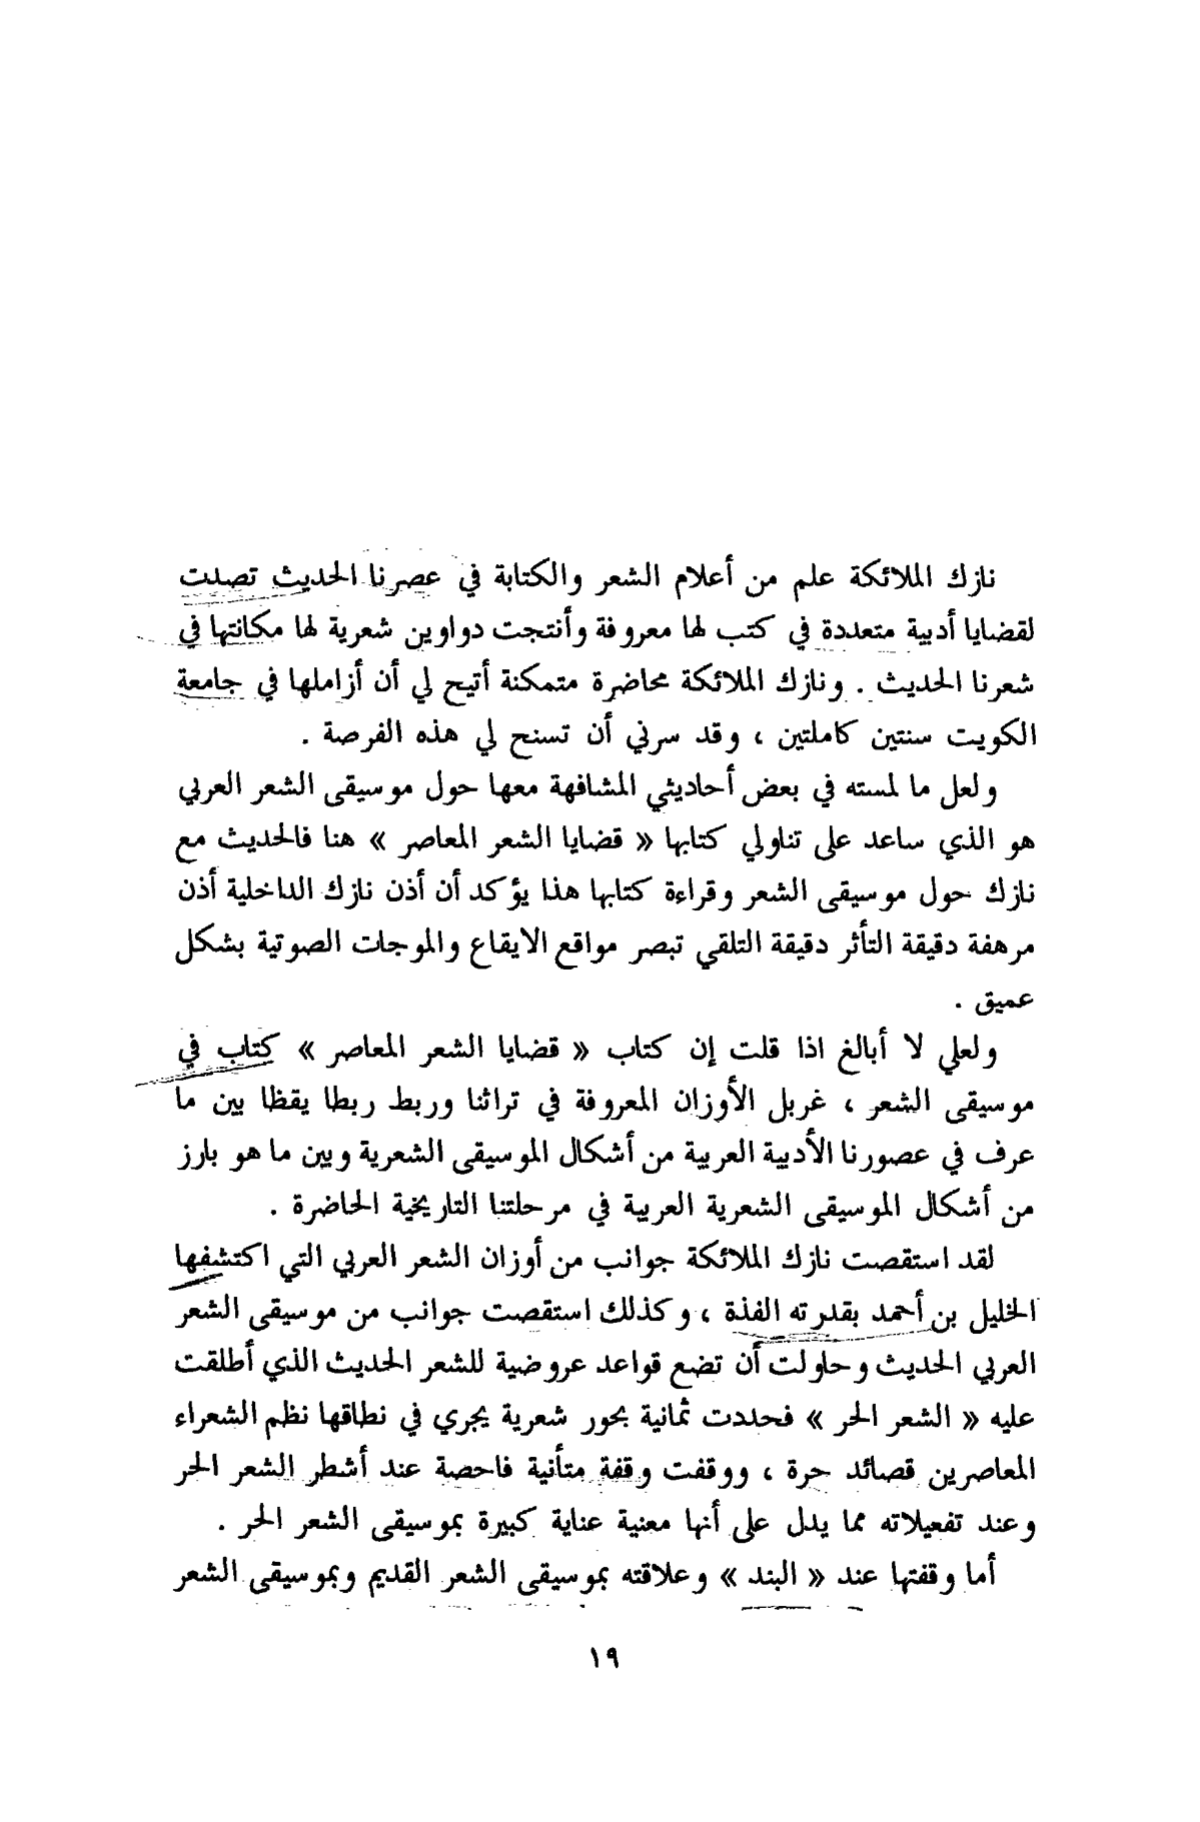 نازك الملائكة علم من أعلام الشعر والكتابة في عصرنا الحديث تصدت
لقضايا أدبية متعددة في كتب لها معروفة وأنتجت دواوين شعرية لها مكانتها في
شعرنا الحديث . ونازك الملائكة محاضرة متمكنة أتيح لي أن أزاملها في جامعة
الكويت سنتين كاملتين ، وقد سرني أن تسنح لي هذه الفرصة .
ولعل ما لمسته في بعض أحاديثي المشافهة معها حول موسيقى الشعر العربي
هو الذي ساعد على تناولي كتابها « قضايا الشعر المعاصر » هنا فالحديث مع
نازك حول موسيقى الشعر وقراءة كتابها هذا يؤكد أن أذن نازك الداخلية أذن
مرهفة دقيقة التأثر دقيقة التلقي تبصر مواقع الايقاع والموجات الصوتية بشكل
عميق .
ولعلي لا أبالغ اذا قلت إن كتاب « قضايا الشعر المعاصر » كتاب في
موسيقى الشعر ، غربل الأوزان المعروفة في تراثنا وربط ربطا يقظا بين ما
عرف في عصورنا الأدبية العربية من أشكال الموسيقى الشعرية وبين ما هو بارز
من أشكال الموسيقى الشعرية العربية في مرحلتنا التاريخية الحاضرة .
لقد استقصت نازك الملائكة جوانب من أوزان الشعر العربي التي اكتشفها
الخليل بن أحمد بقدرته الفذة ، وكذلك استقصت جوانب من موسيقى الشعر
العربي الحديث وحاولت أن تضع قواعد عروضية للشعر الحديث الذي أطلقت
عليه « الشعر الحر » فحددت ثمانية بحور شعرية يجري في نطاقها نظم الشعراء
المعاصرين قصائد حرة ، ووقفت وقفة متأنية فاحصة عند أشطر الشعر الحر
وعند تفعيلاته مما يدل على أنها معنية عناية كبيرة بموسيقى الشعر الحر .
أما وقفتها عند « البند » وعلاقته بموسيقى الشعر القديم وبموسيقى الشعر
١٩